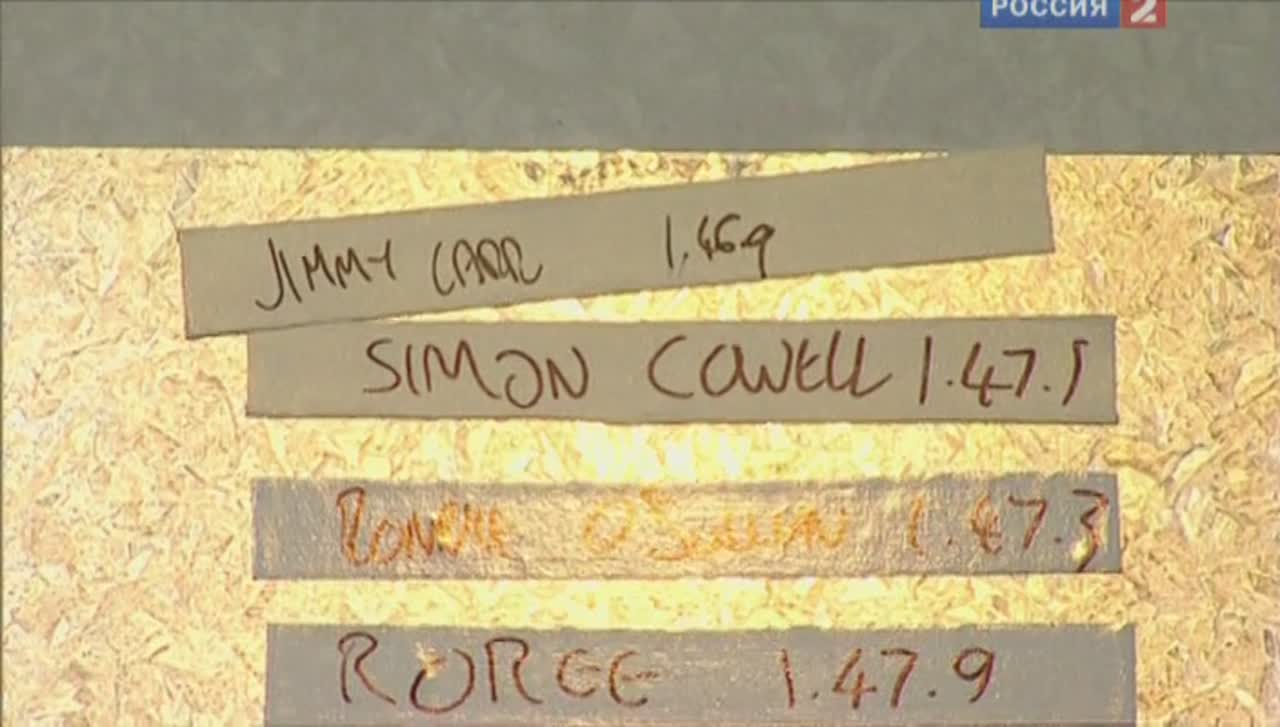 РОССИЯ 2
JIMMY CARR 1.46.9
SIMON COWELL 1.47.1
RONNIE O'SULLIVAN 1.47.3
ROREE 1.47.9